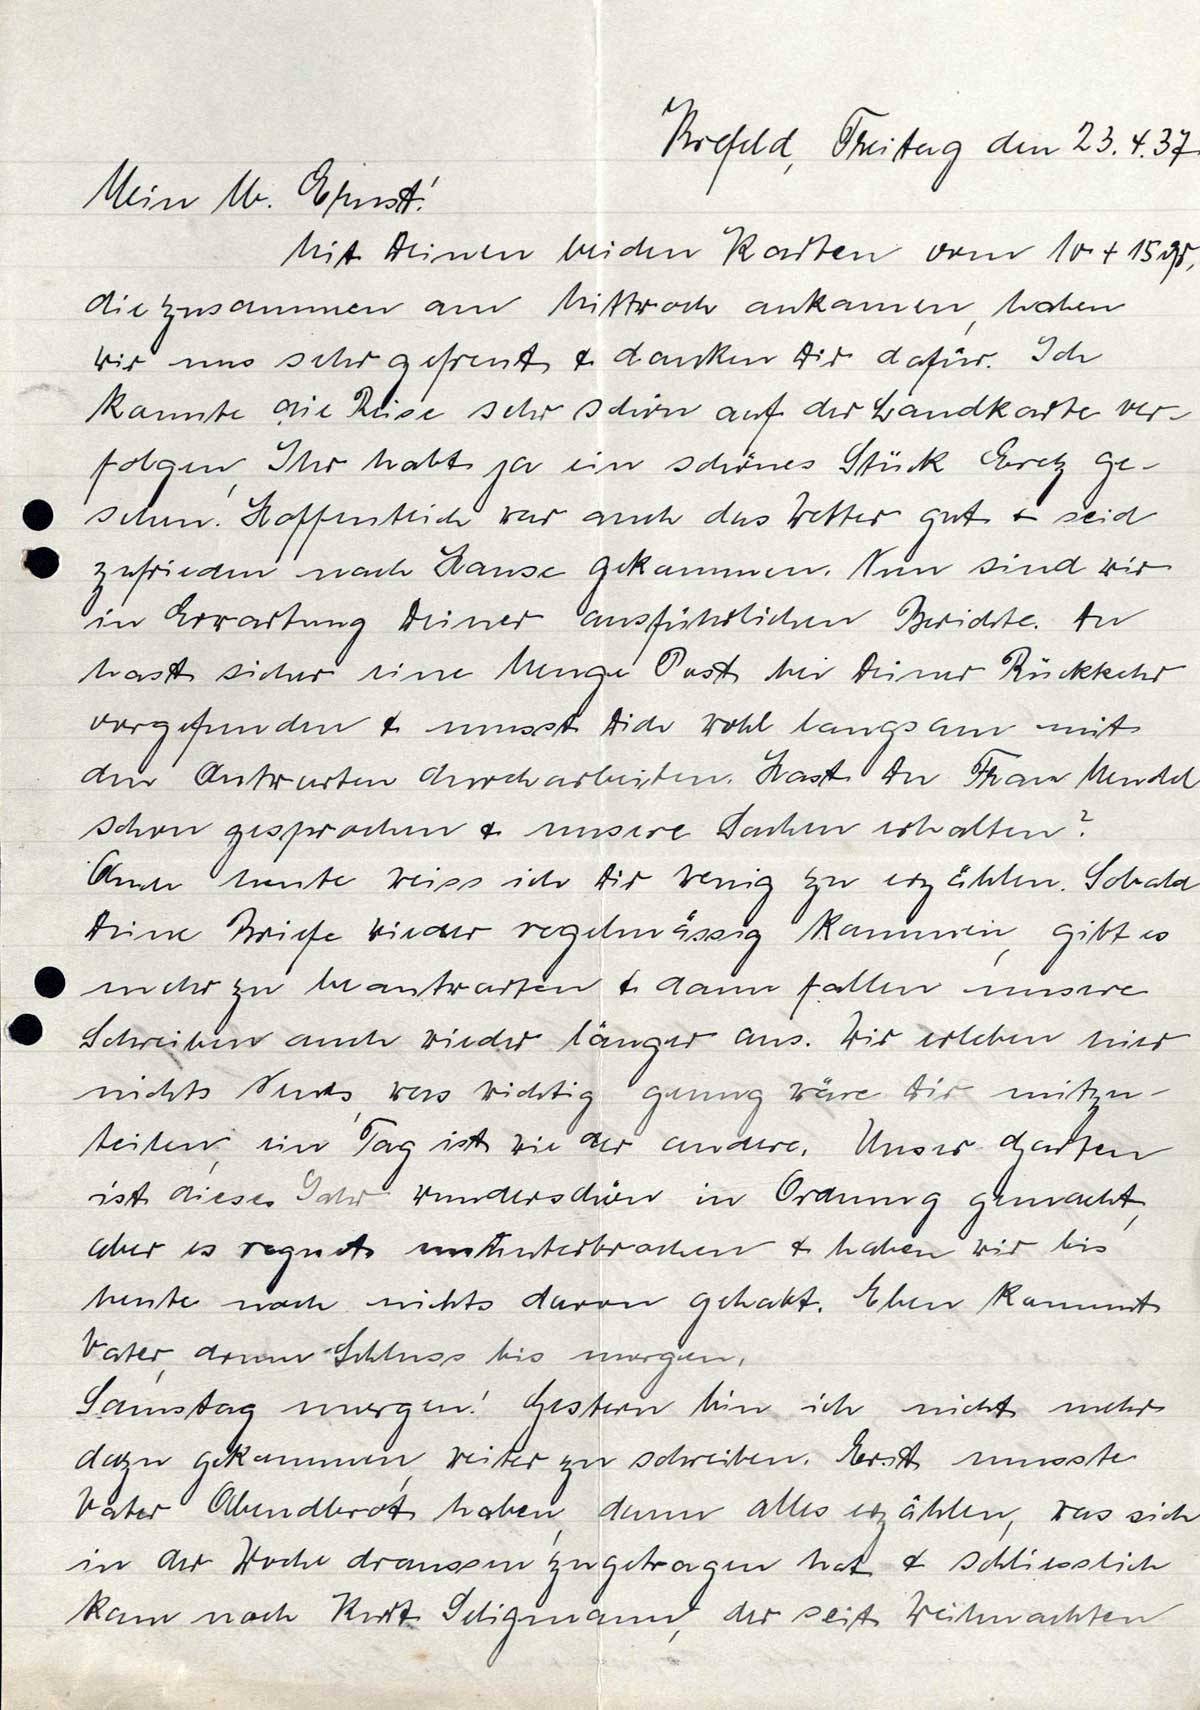 Krefeld, Freitag den 23.4.37
Mein l. Ernst!
Mit Deinen beiden Karten vom 10 + 15 ds,
die zusammen am Mittwoch ankamen, haben
wir uns sehr gefreut & danken Dir dafür. Ich
konnte die Reise sehr schön auf der Landkarte ver-
folgen, Ihr habt ja ein schönes Stück Erez ge-
sehen. Hoffentlich war auch das Wetter gut & seid
zufrieden nach Hause gekommen. Nun sind wir
in Erwartung Deiner ausführlichen Berichte. Du
hast sicher eine Menge Post bei Deiner Rückkehr
vorgefunden & musst Dich wohl langsam mit
den Antworten durcharbeiten. Hast Du Frau Mendel
schon gesprochen & unsere Sachen erhalten?
Auch heute weiss ich Dir wenig zu erzählen. Sobald
Deine Briefe wieder regelmässig kommen, gibt es
mehr zu beantworten & dann fallen unsere
Schreiben auch wieder länger aus. Wir erleben hier
nichts Neues, was wichtig genug wäre Dir mitzu-
teilen, ein Tag ist wie der andere. Unser Garten
ist dieses Jahr wunderschön in Ordnung gemacht,
aber es regnet ununterbrochen & haben wir bis
heute noch nichts davon gehabt. Eben kommt
Vater, drum Schluss bis morgen.
Samstag morgen! Gestern bin ich nicht mehr
dazu gekommen, weiter zu schreiben. Erst musste
Vater Abendbrot haben, dann alles erzählen, was sich
in der Woche draussen zugetragen hat & schliesslich
kam noch Kurt Seligmann, der seit Weihnachten